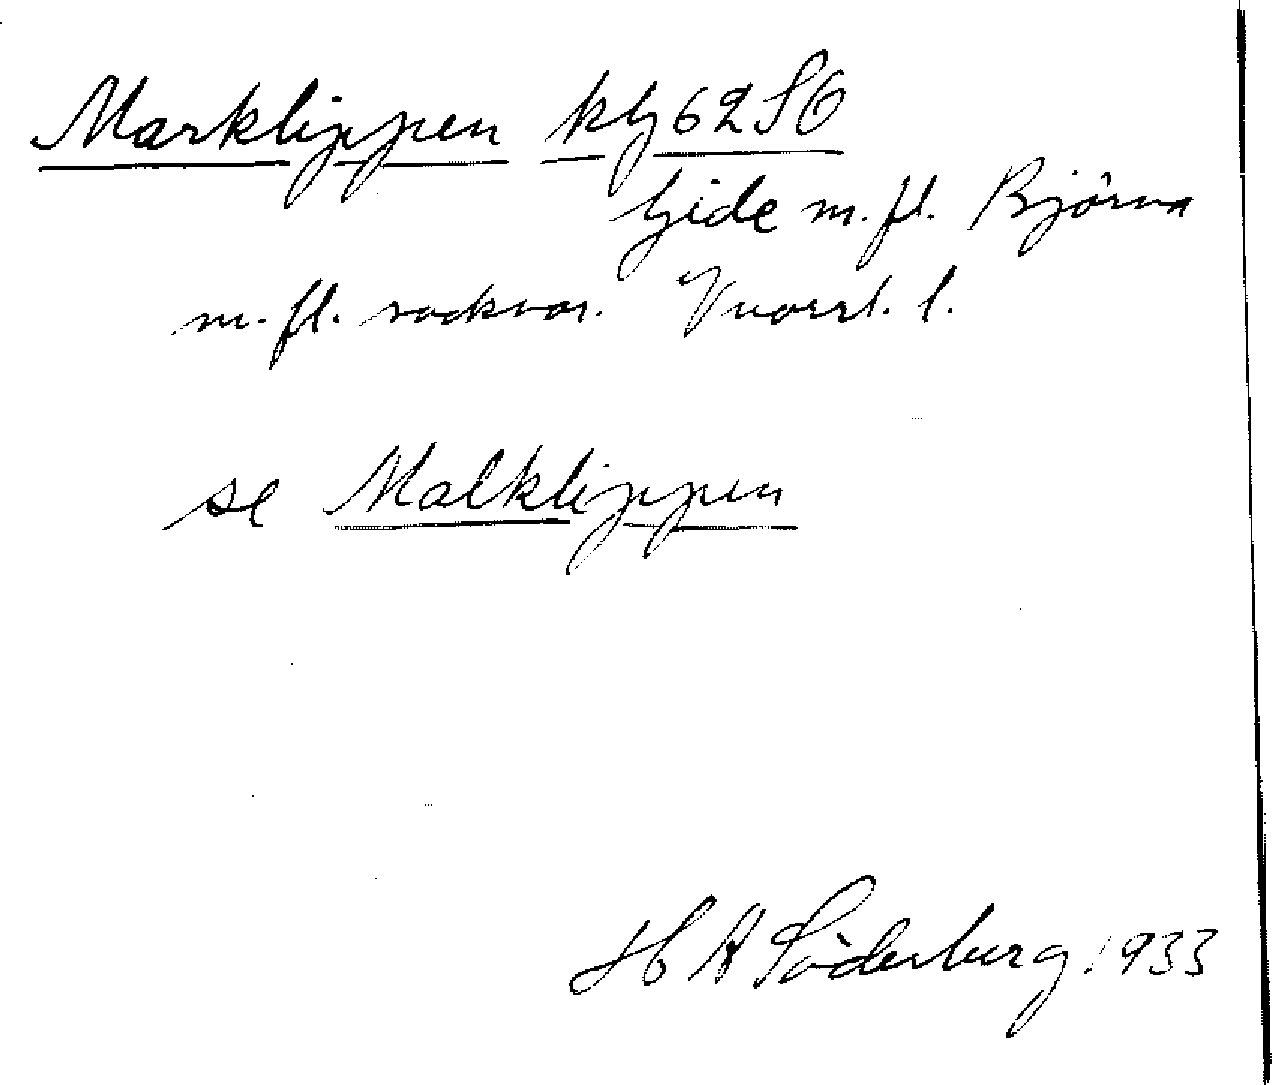 Marklippen klj 62 SO
Gide m. fl. Björna
m. fl. socknar.
se Malklippen
H A Söderberg 1933